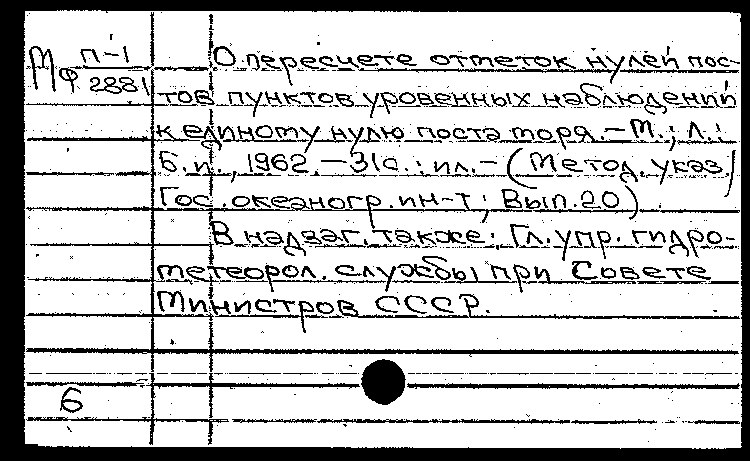 МФ П-1
2881
О пересчете отметок нулей пос-
тов пунктов уровенных наблюдений
к единому нулю поста моря. - М.; Л.:
Б.и., 1962. - 31с.: ил. - (Метод. указ./
Гос. океаногр. ин-т; Вып. 20)
В надзаг. также: Гл. упр. гидро-
метеорол. службы при Совете
Министров СССР.
6